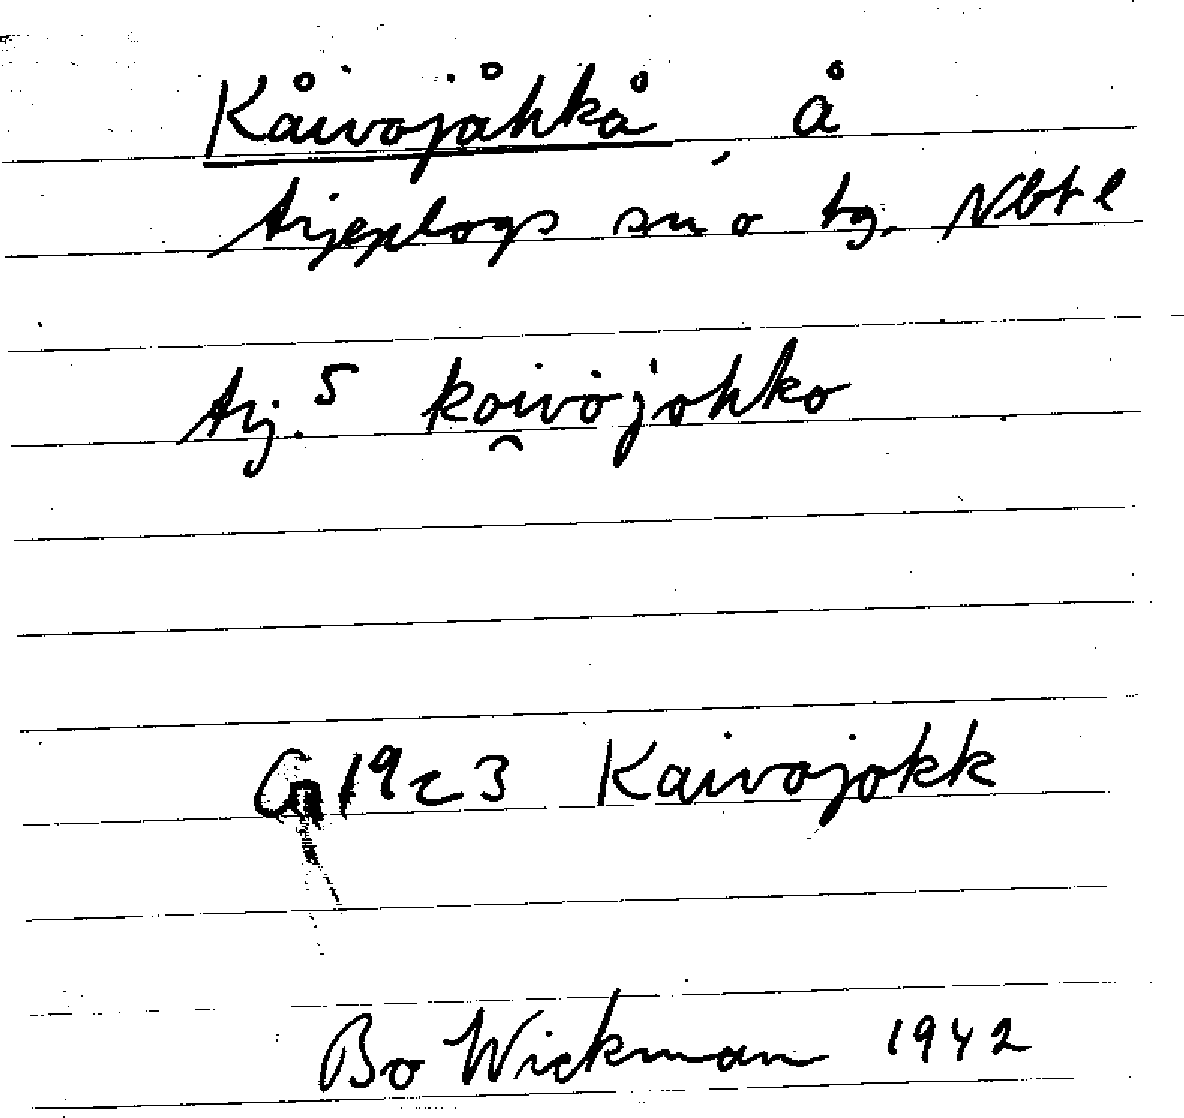 Kåivojåhkå, å
Arjeplogs sn o tg. Nbt l
Arj.⁵ koi̯vojohko
G 1923 Kaivojokk
Bo Wickman 1942